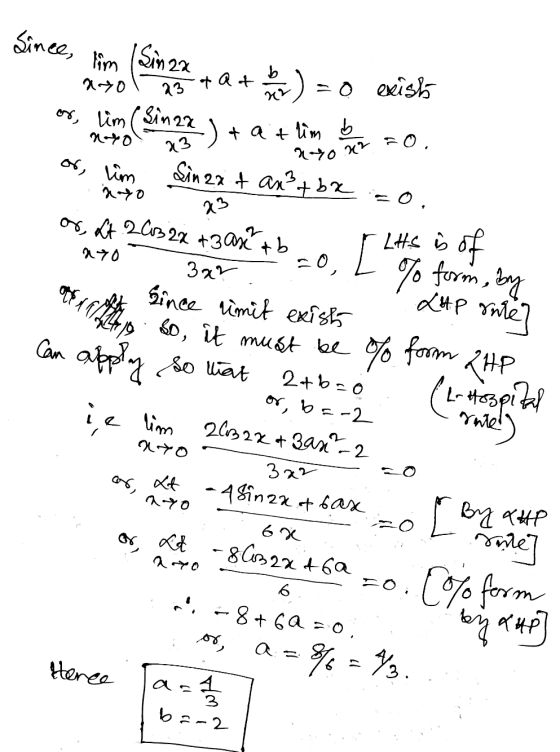 Since, lim x→0 (Sin2x/x3 + a + b/x²) = 0 exists
or, lim x→0 (Sin2x/x3) + a + lim x→0 b/x² = 0.
or, lim x→0 Sin2x + ax³ + bx / x3 = 0.
or, Lt x→0 2Cos2x + 3ax² + b / 3x² = 0, [LHS is of
% form, by
LHP rule]
Since limit exists
So, it must be % form LHP
Can apply so that 2+b=0 (L-Hospital
or, b = -2 rule)
i,e lim x→0 2Cos2x + 3ax² - 2 / 3x² = 0
or, Lt x→0 -4Sin2x + 6ax / 6x = 0 [By LHP
rule]
or, Lt x→0 -8Cos2x + 6a / 6 = 0. [% form
by LHP]
∴ -8 + 6a = 0.
or, a = 8/6 = 4/3.
Hence a = 4/3
b = -2